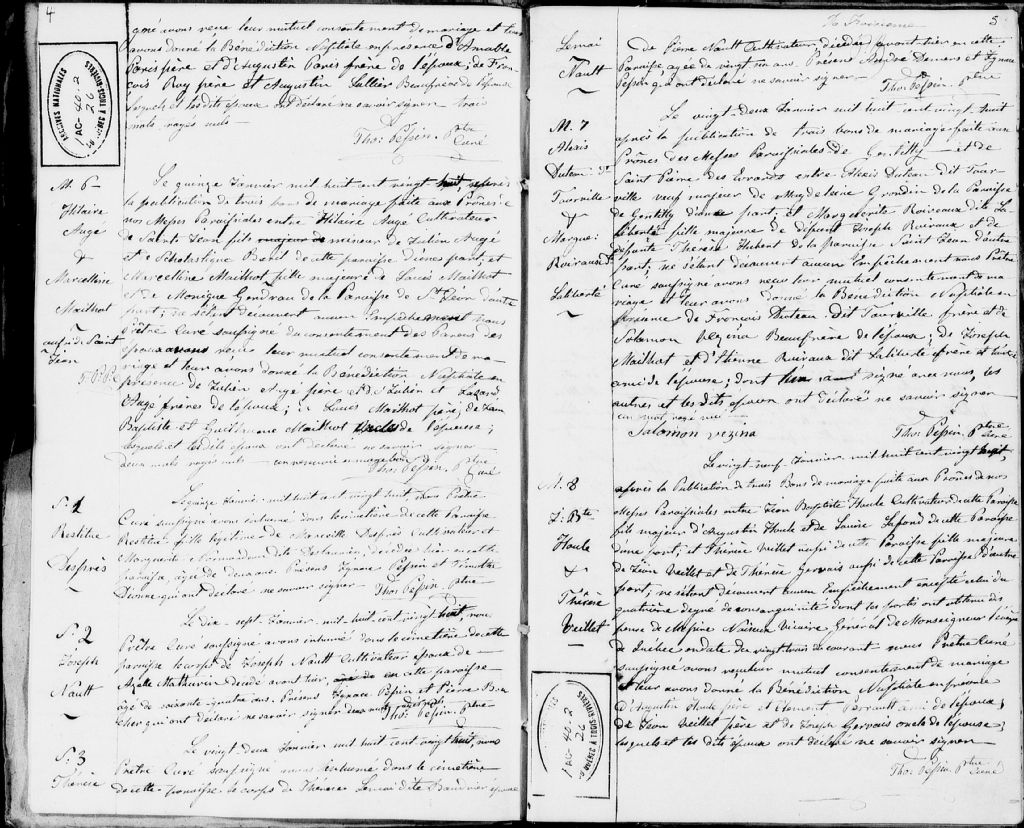 4
gné avons reçu leur mutuel consentement de mariage et leur
avons donné la Bénédiction Nuptiale en présence d'Amable
Paris père et d'Augustin Paris frère de l'époux; de Fran
çois Roy père et Augustin Beaufrère de l'épouse
lesquels et les dits époux ont déclaré ne savoir signer trois
mots rayés nuls
Thos Pepin. Ptre
Curé
ARCHIVES NATIONALES
1AC-40.2
26
DU QUÉBEC À TROIS-RIVIÈRES
M. 6
Hilaire
Augé
&
Marcelline
Mailhot
Saint
Jean
Le quinze Janvier mil huit cent vingt huit, après
la publication de trois bans de mariage faite aux Prônes de
nos Messes Paroissiales entre Hilaire Augé Cultivateur
de Saint Jean fils majeur de mineur de Julien Augé
et de Scholastique de cette paroisse d'une part; et
Marcelline Mailhot fille majeure de Louis Mailhot
et de Monique Gendrau de la Paroisse de St Jean d'autre
part; ne s'étant découvert aucun Empêchement nous
Prêtre Curé soussigné du consentement des Parens des
époux avons reçu leur mutuel consentement de ma-
riage et leur avons donné la Bénédiction Nuptiale en
présence de Julien Augé père et de Julien et Lazard
Augé frères de l'époux; Louis Mailhot père; de Jean
Baptiste et Guillaume Mailhot oncles de l'épouse;
lesquels et les dits époux ont déclaré ne savoir signer
deux mots rayés nuls
Thos Pepin, Ptre
Curé
S. 1
Restitue
Desprès
Le quinze Janvier mil huit cent vingt huit Nous Prêtre
Curé soussigné avons inhumé dans le cimetière de cette Paroisse
Restitue fille légitime de Desprès Cultivateur et
Marguerite décédée hier en cette
paroisse âgée de deux ans. Présens Ignace Pepin et Timothé
Dionne qui ont déclaré ne savoir signer
Thos Pepin Ptre
S. 2
Joseph
Nault
Le dix-sept Janvier mil huit cent vingt huit, nous
Prêtre Curé soussigné avons inhumé dans le cimetière de cette
Paroisse le corps de Joseph Nault Cultivateur époux de
Mathurin décédé avant hier, en cette paroisse
âgé de soixante quatre ans. Présens Ignace Pepin et Pierre Bou
cher qui ont déclaré ne savoir signer deux mots rayés nuls
Thos Pepin, Ptre
S. 3
Thérèse
Le vingt deux Janvier mil huit cent vingt huit, nous
Prêtre Curé soussigné avons inhumé dans le cimetière
de cette paroisse le corps de Thérèse Lemai dite épouse
5
Lemai
Nault
de Pierre Nault Cultivateur décédée avant hier en cette
Paroisse agée de vingt six ans Présens Demers et Ignace
Pepin qui ont déclaré ne savoir signer
Thos Pepin. Ptre
M. 7
Alexis
Duteau dt
Tourville
&
Margue:
Roiraux dt
Laliberté
Le vingt-deux Janvier mil huit cent vingt huit
après la publication de trois bans de mariage faite aux
Prônes des Messes Paroissiales de Gentilly et de
Saint Pierre les entre Alexis Duteau dit Tour
ville veuf majeur de Magdelaine Grondin de la Paroisse
de Gentilly d'une part; et Marguerite Roiraux dit La
liberté fille majeure de défunt Joseph Roiraux et de
défunte Thérèse Hubert de la paroisse Saint Jean d'autre
part; ne s'étant découvert aucun Empêchement nous Prêtre
Curé soussigné avons reçu leur mutuel consentement de ma
riage et leur avons donné la Bénédiction Nuptiale en
présence de François Duteau dit Tourville frère et de
Salomon Vezina Beaufrère de l'époux; de Joseph
Mailhot et d'Etienne Roiraux dit Laliberté frère et
ami de l'épouse; dont un a signé avec nous, les
autres et les dits époux ont déclaré ne savoir signer
un mot rayé nul
Salomon vezina
Thos Pepin, Ptre
Curé
M. 8
J. Bte
Houle
&
Thérèse
Veillet
Le vingt neuf Janvier mil huit cent vingt huit,
après la Publication de trois Bans de mariage faite aux Prônes de nos
Messes Paroissiales entre Jean Baptiste Houle Cultivateur de cette Paroisse
fils majeur d'Augustin Houle et de Louise Lafond de cette Paroisse
d'une part; et Thérèse Veillet aussi de cette Paroisse fille majeure
de Jean Veillet et de Thérèse Gervais aussi de cette Paroisse d'autre
part; ne s'étant découvert aucun Empêchement excepté celui du
quatrième degré de consanguinité dont les partis ont obtenu dis
pense de Messire Vicaire Général de Monseigneur l'évêque
de Québec en date du vingt trois du courant nous Prêtre Curé
soussigné avons reçu leur mutuel consentement de mariage
et leur avons donné la Bénédiction Nuptiale en présence
d'Augustin Houle père et Clement Perrault ami de l'époux;
de Jean Veillet père et de Joseph Gervais oncle de l'épouse;
lesquels et les dits époux ont déclaré ne savoir signer
Thos Pepin Ptre
Curé
1AC-40.2
26
DU QUÉBEC À TROIS-RIVIÈRES